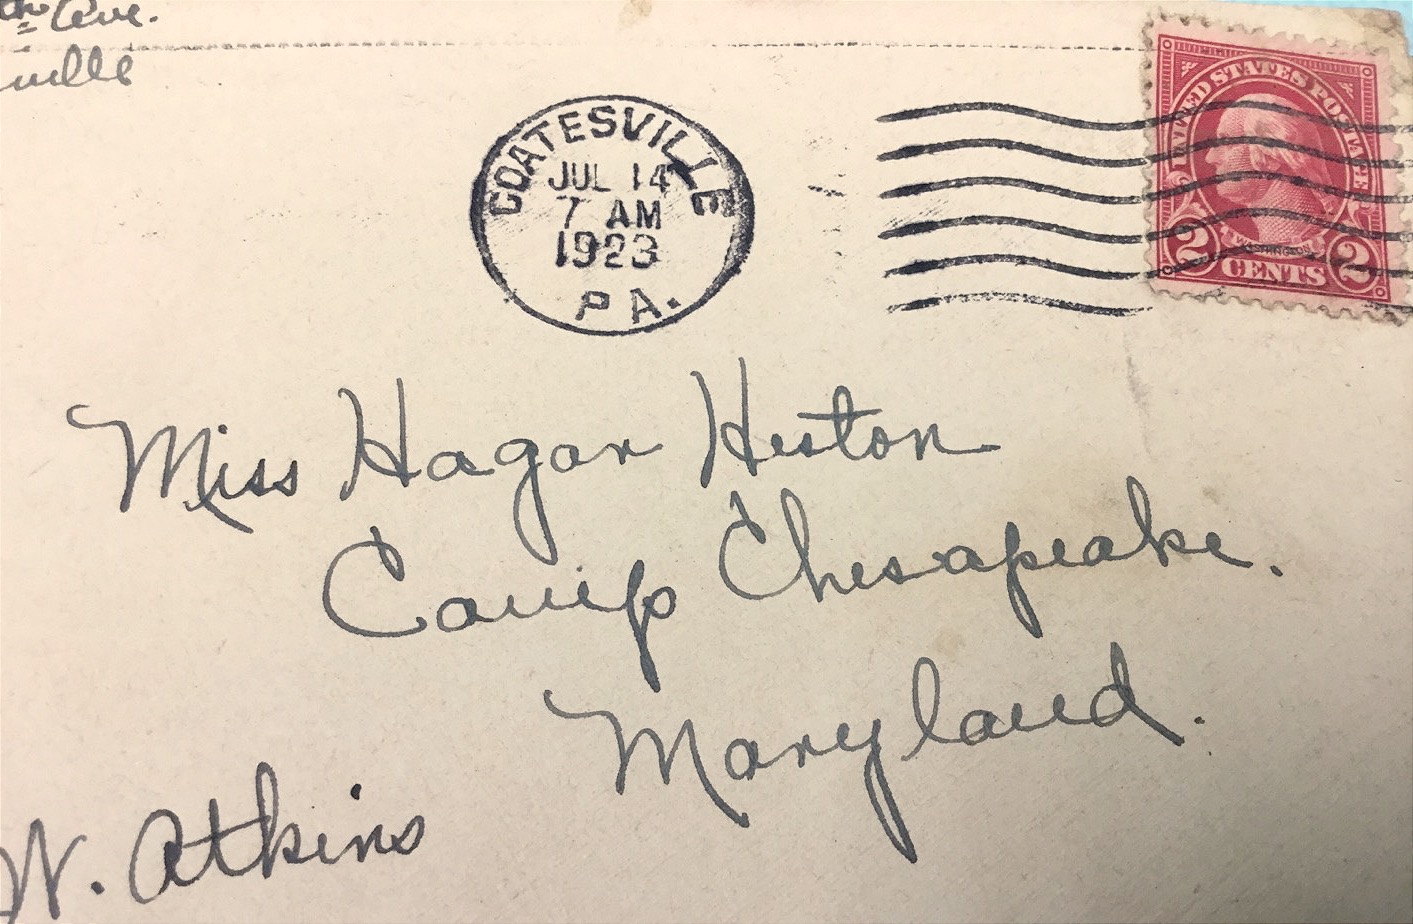 Ave.
ville
COATESVILLE
JUL 14
7 AM
1923
PA.
UNITED STATES POSTAGE
WASHINGTON
2 CENTS 2
Miss Hagar Heston
Camp Chesapeake.
Maryland.
W. Atkins